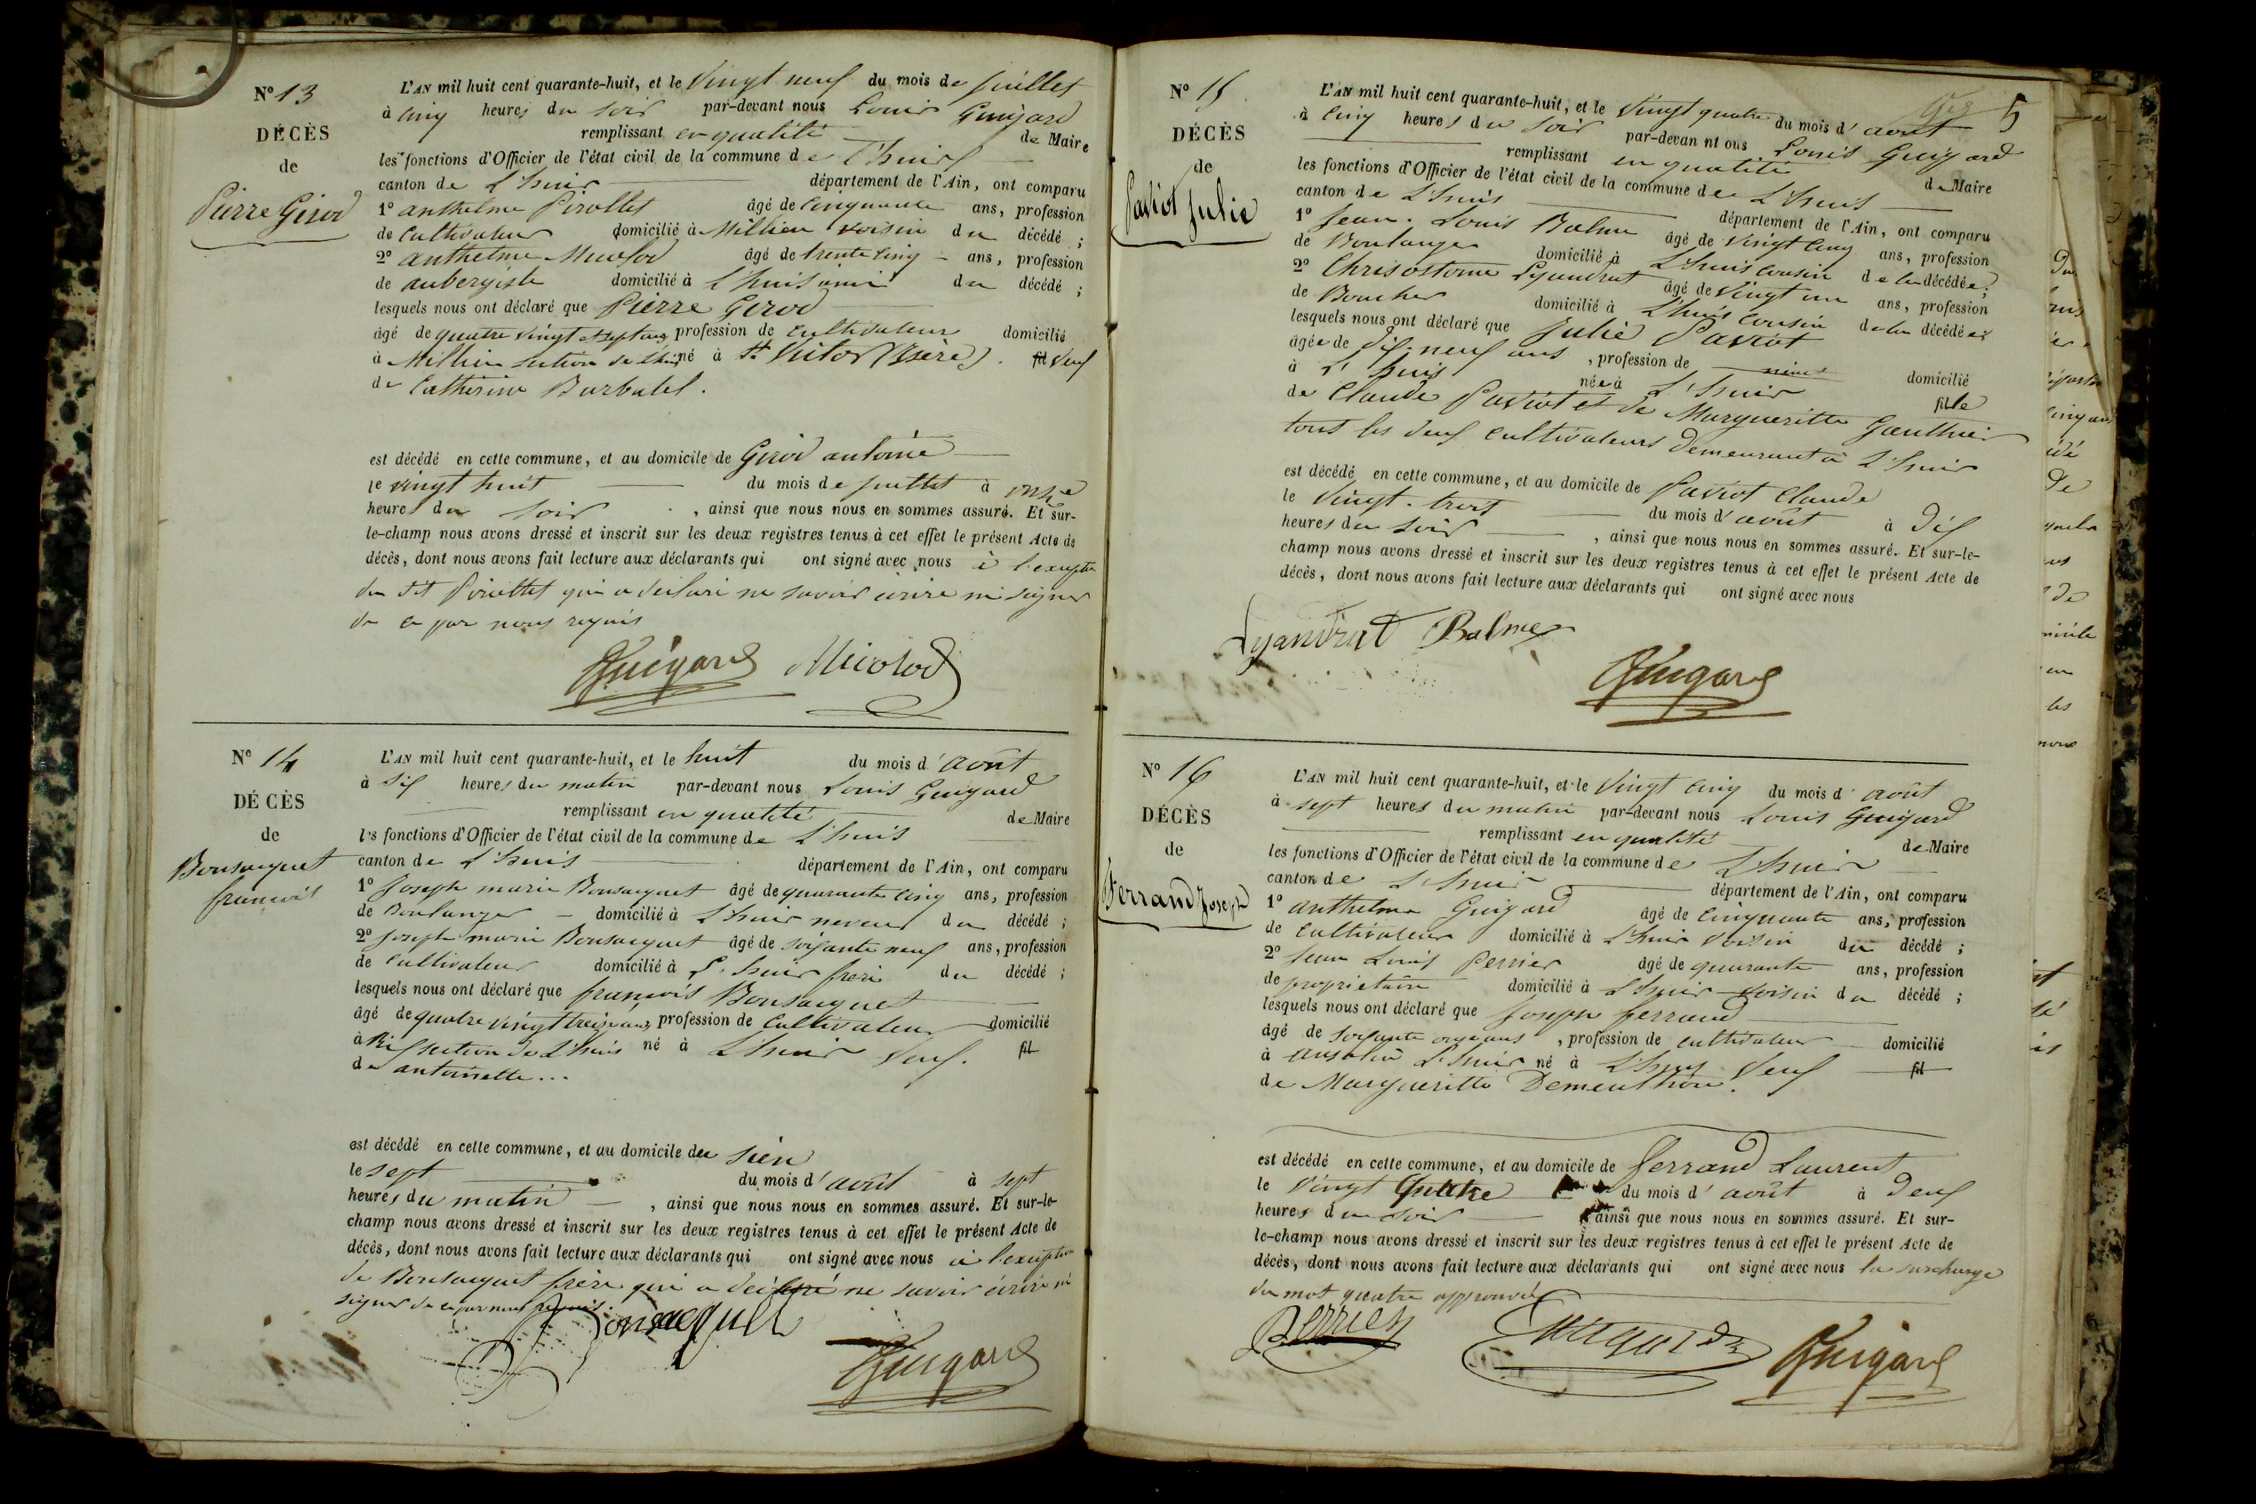 N° 13
DÉCÈS
de
Pierre Girod
L'AN mil huit cent quarante-huit, et le vingt neuf du mois de juillet
à cinq heures du soir par-devant nous Louis Guigard
remplissant en qualité de Maire
les fonctions d'Officier de l'état civil de la commune de L'huis
canton de L'huis département de l'Ain, ont comparu
1° anthelme Pirollet âgé de cinquante ans, profession
de cultivateur domicilié à Millieu voisin du décédé ;
2° anthelme âgé de trente cinq ans, profession
de aubergiste domicilié à L'huis ami du décédé ;
lesquels nous ont déclaré que Pierre Girod
âgé de quatre vingt sept ans profession de cultivateur domicilié
à Millieu section de L'huis né à St Victor (Isère). fil veuf
de Catherine Barbatel.
est décédé en cette commune, et au domicile de Girod antoine
le vingt huit du mois de juillet à onze
heures du soir , ainsi que nous nous en sommes assuré. Et sur-
le-champ nous avons dressé et inscrit sur les deux registres tenus à cet effet le présent Acte de
décès, dont nous avons fait lecture aux déclarants qui ont signé avec nous à l'exception
du dit Pirollet qui a déclaré ne savoir écrire ni signer
de ce par nous requis
Guigard Micolod
N° 14
DÉCÈS
de
Bonsacquet
françois
L'AN mil huit cent quarante-huit, et le huit du mois d'août
à six heures du matin par-devant nous Louis Guigard
remplissant en qualité de Maire
les fonctions d'Officier de l'état civil de la commune de L'huis
canton de L'huis département de l'Ain, ont comparu
1° Joseph marie Bonsacquet âgé de quarante cinq ans, profession
de Boulanger domicilié à L'huis neveu du décédé ;
2° Joseph marie Bonsacquet âgé de soixante neuf ans, profession
de cultivateur domicilié à L'huis frère du décédé ;
lesquels nous ont déclaré que françois Bonsacquet
âgé de quatre vingt treize ans, profession de cultivateur domicilié
à Rix section de L'huis né à L'huis veuf. fil
de antoinette...
est décédé en cette commune, et au domicile du sien
le sept du mois d'août à sept
heures du matin , ainsi que nous nous en sommes assuré. Et sur-le-
champ nous avons dressé et inscrit sur les deux registres tenus à cet effet le présent Acte de
décès, dont nous avons fait lecture aux déclarants qui ont signé avec nous à l'exception
de Bonsacquet frère qui a déclaré ne savoir écrire ni
signer de ce par nous requis.
Bonsacquet
Guigard
5
N° 15
DÉCÈS
de
Paviot Julie
L'AN mil huit cent quarante-huit, et le vingt quatre du mois d'août
à cinq heures du soir par-devant nous Louis Guigard
remplissant en qualité de Maire
les fonctions d'Officier de l'état civil de la commune de L'huis
canton de L'huis département de l'Ain, ont comparu
1° Jean-Louis Balme âgé de vingt cinq ans, profession
de Boulanger domicilié à L'huis cousin de la décédée ;
2° Chrisostome Lyaudrat âgé de vingt un ans, profession
de Boucher domicilié à L'huis cousin de la décédée
lesquels nous ont déclaré que Julie Paviot
âgée de dix-neuf ans , profession de domicilié
à L'huis née à L'huis fille
de Claude Paviot et de Margueritte Gauthier
tous les deux cultivateurs demeurant à L'huis
est décédé en cette commune, et au domicile de Paviot Claude
le vingt-trois du mois d'août à dix
heures du soir , ainsi que nous nous en sommes assuré. Et sur-le-
champ nous avons dressé et inscrit sur les deux registres tenus à cet effet le présent Acte de
décès, dont nous avons fait lecture aux déclarants qui ont signé avec nous
Lyandrat Balme
Guigard
N° 16
DÉCÈS
de
Ferrand Joseph
L'AN mil huit cent quarante-huit, et le vingt cinq du mois d'août
à sept heures du matin par-devant nous Louis Guigard
remplissant en qualité de Maire
les fonctions d'Officier de l'état civil de la commune de L'huis
canton de L'huis département de l'Ain, ont comparu
1° anthelme Guigard âgé de cinquante ans, profession
de cultivateur domicilié à L'huis voisin du décédé ;
2° Jean Louis Perrier âgé de quarante ans, profession
de propriétaire domicilié à L'huis voisin du décédé ;
lesquels nous ont déclaré que Joseph ferrand
âgé de soixante onze ans , profession de cultivateur domicilié
à ansolin L'huis né à L'huis veuf fil
de Margueritte Dementhon.
est décédé en cette commune, et au domicile de ferrand Laurent
le vingt quatre du mois d'août à deux
heures du soir , ainsi que nous nous en sommes assuré. Et sur-
le-champ nous avons dressé et inscrit sur les deux registres tenus à cet effet le présent Acte de
décès, dont nous avons fait lecture aux déclarants qui ont signé avec nous la surcharge
du mot quatre approuvée
Perrier Guigard Guigard